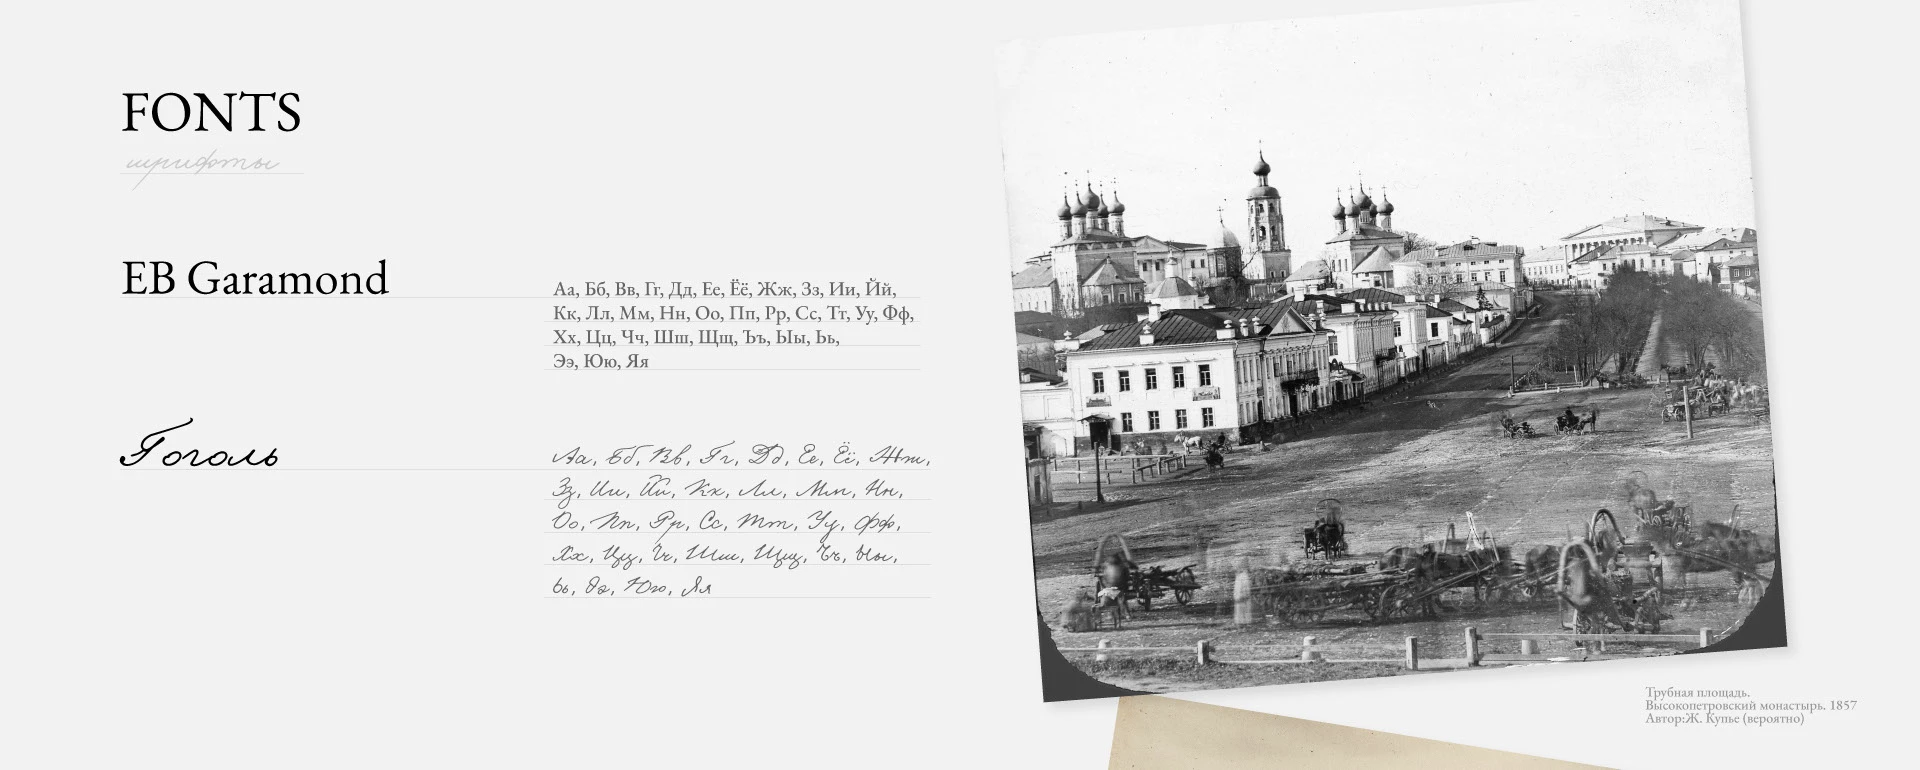 FONTS
шрифты
EB Garamond
Аа, Бб, Вв, Гг, Дд, Ее, Ёё, Жж, Зз, Ии, Йй,
Кк, Лл, Мм, Нн, Оо, Пп, Рр, Сс, Тт, Уу, Фф,
Хх, Цц, Чч, Шш, Щщ, Ъъ, Ыы, Ьь,
Ээ, Юю, Яя
Гоголь
Аа, Бб, Вв, Гг, Дд, Ее, Ёё, Жж,
Зз, Ии, Йй, Кк, Лл, Мм, Нн,
Оо, Пп, Рр, Сс, Тт, Уу, Фф,
Хх, Цц, Чч, Шш, Щщ, Ъъ, Ыы,
Ьь, Ээ, Юю, Яя
Трубная площадь.
Высокопетровский монастырь. 1857
Автор:Ж. Купье (вероятно)